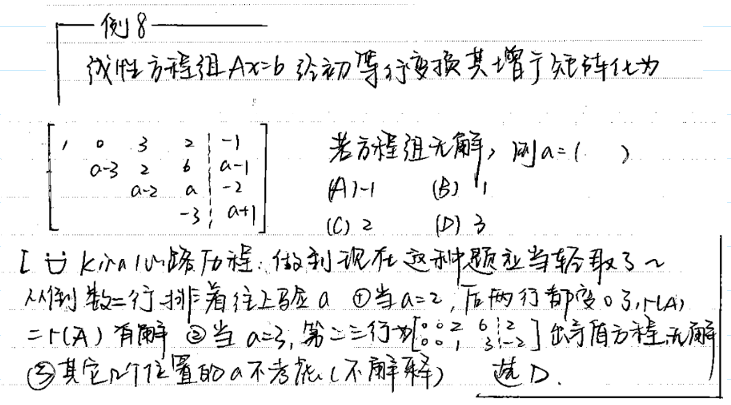 例8
线性方程组Ax=b经初等行变换其增广矩阵化为
1 0 3 2 | -1
a-3 2 6 | a-1
a-2 a | -2
-3 | a+1
若方程组无解，则a=( )
(A) -1 (B) 1
(C) 2 (D) 3
[ Kira心路历程：做到现在这种题应当轻取了~
从倒数二行排着往上验a ①当a=2，后两行都变0了，r(A)
=r(Ā) 有解 ②当a=3，第二三行为[0 0 2 6 | 2
0 0 1 3 | -2] 出矛盾方程无解
③其它几个位置的a不考虑(不解释) 选D.